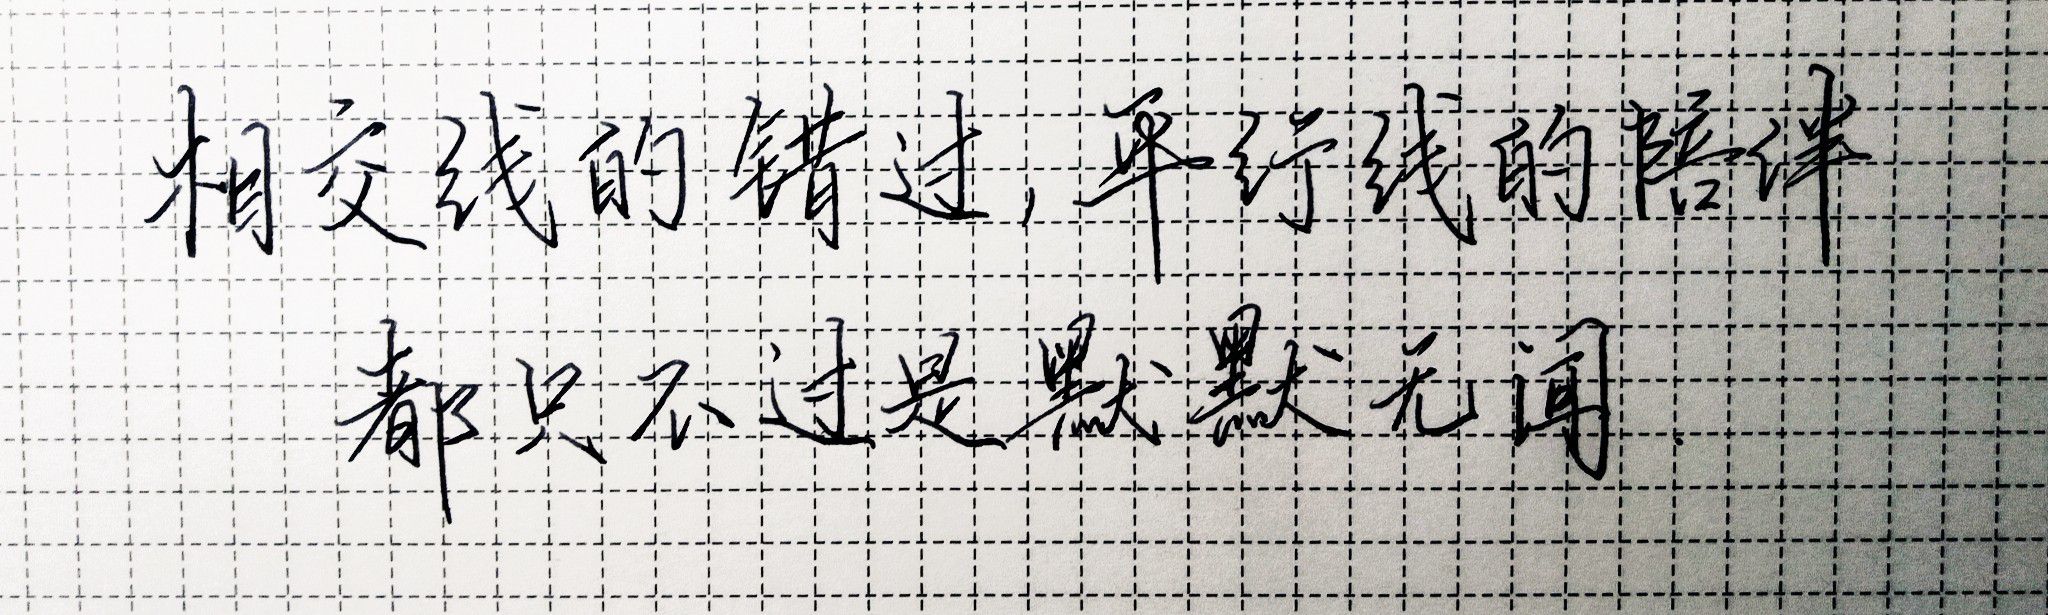 相交线的错过,平行线的陪伴
都只不过是默默无闻.